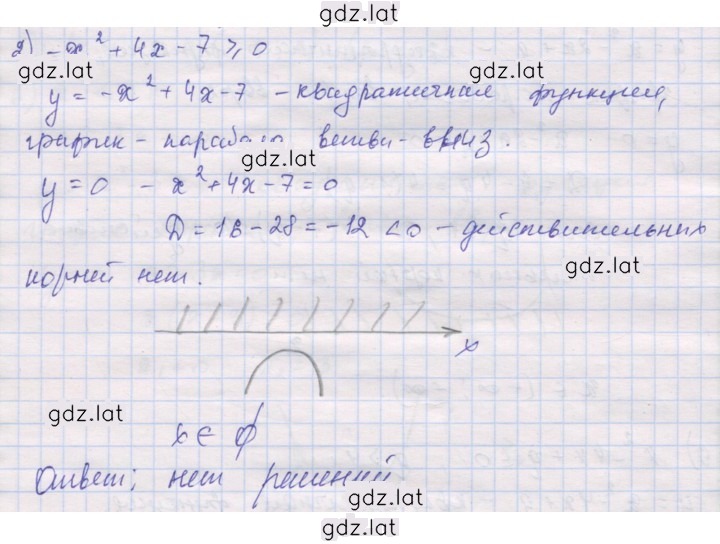 gdz.lat
2) -x² + 4x - 7 ≥ 0
gdz.lat
gdz.lat
y = -x² + 4x - 7 - квадратичная функция,
график - парабола ветви - вниз.
gdz.lat
y = 0 - x² + 4x - 7 = 0
Д = 16 - 28 = -12 < 0 - действительных
gdz.lat
корней нет.
x
gdz.lat
x ∈ ∅
Ответ: нет решений
gdz.lat
gdz.lat